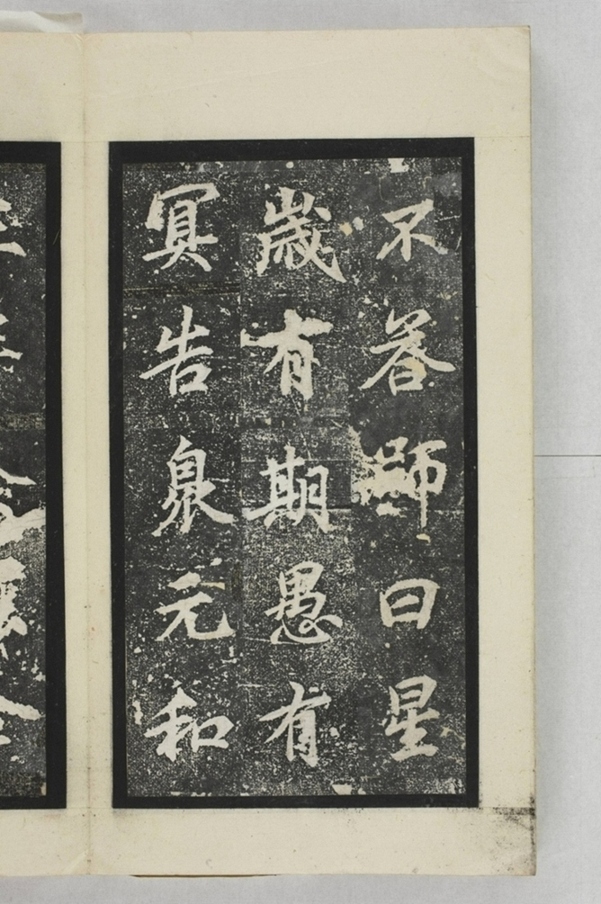 不答師曰星
歲有期愚有
冥告泉元和